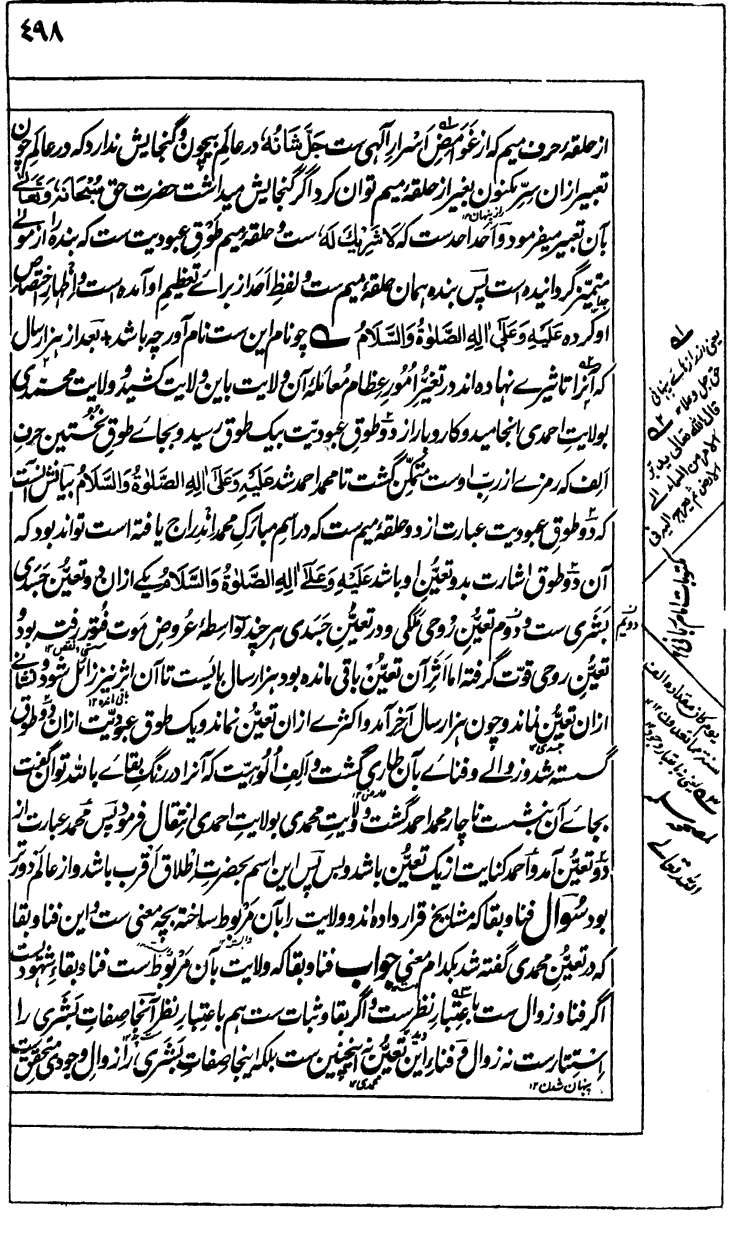 ٤٩٨
از حلقۀ حرف میم که از غوامض اسرار الٓهی ست جلّ شانه، در عالم بیچون و گنجایش ندارد که در عالم چون
تعبیر ازان سرّ مکنون بغیر از حلقۀ میم توان کرد اگر گنجایش میداشت حضرت حق سبحانه وتعالے
بآن تعبیر میفرمود و اَحَد احدست که لا شریك له، ست و حلقۀ میم طوق عبودیت ست که بنده را از مولے
متمیّز گردانیده است پس بنده همان حلقۀ میم ست و لفظ اَحَد از برائے تعظیم او آمده است و اظهار اختصاص
او کرده علیه وعلیٰ اٰله الصلوٰة والسلام ؎ چو نام این ست نام آور چه باشد + بعد از هزار سال
که آنرا تاثیرے نهاده اند در تغیّر امور عظام معاملۀ آن ولایت باین ولایت کشید و ولایت محمّدی
بولایت احمدی انجامید و کاروبار از دو طوق عبودیت بیک طوق رسید و بجائے طوق نخستین حرف
الف که رمزے از ربّ اوست متمکّن گشت تا محمد احمد شد علیه وعلیٰ اٰله الصلوٰة والسلام بیانش آنست
که دو طوق عبودیت عبارت از دو حلقۀ میم ست که در اسم مبارک محمد اندراج یافته است تواند بود که
آن دو طوق اشارت بدو تعیّن او باشد علیه وعلےٰ اٰله الصلوٰة والسلام یکے ازان دو تعیّن جسدی
بشری ست و دوم تعیّن روحی ملکی و در تعیّن جسدی هر چند بواسطۀ عروض موت فتور رفته بود و
تعیّن روحی قوّت گرفته اما اثر آن تعیّن باقی مانده بود هزار سال بایست تا آن اثر نیز زائل شود و نشانے
ازان تعیّن نماند و چون هزار سال آخر آمد و اثرے ازان تعیّن نماند و یک طوق عبودیّت ازان دو طوق
گسسته شد و زوالے و فنائے بآن طاری گشت و الف الوهیت که آنرا در رنگ بقائے باللّه توان گفت
بجائے آن بنشست ناچار محمد احمد گشت و ولایت محمدی بولایت احمدی انتقال فرمود پس محمد عبارت از
دو تعیّن آمد و احمد کنایت از یک تعیّن باشد و بس پس این اسم بحضرت اطلاق اقرب باشد و از عالم دورتر
بود سُوال فنا و بقا که مشایخ قرار داده اند و ولایت را بآن مربوط ساخته بچه معنی ست و این فنا و بقا
که در تعیّن محمدی گفته شد بکدام معنی جواب فنا و بقا که ولایت بآن مربوط ست فنا و بقاء شهودیست
اگر فنا و زوال ست باعتبار نظر ست و اگر بقا و ثبات ست هم باعتبار نظر آنجا صفات بشری را
استتارست نه زوال و فناء این تعیّن نه آنچنین ست بلکه اینجا صفات بشری را زوال وجودی متحقق ست
پنهان شدن ۱۲
محمدی ۱۲
یعنی راز رازهائے پنهانی
حق جل وعلا ۱۲
قال الله تعالی یدبر
الامر من السماء الی
الارض ثم یعرج الیه فی
مکتوبات امام ربانی
یوم کان مقداره الف
سنة مما تعدون ۱۲
الله تعالے